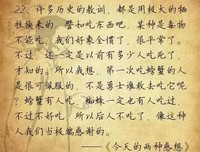 22. 许多历史的教训，都是用极大的牺
牲换来的。譬如吃东西吧，某种是毒物
不能吃，我们好象全惯了，很平常了。
不过，这一定是以前有多少人吃死了，
才知的。所以我想，第一次吃螃蟹的人
是很可佩服的，不是勇士谁敢去吃它呢
？螃蟹有人吃，蜘蛛一定也有人吃过，
不过不好吃，所以后人不吃了，像这种
人我们当极端感谢的。
——《今天的两种感想》